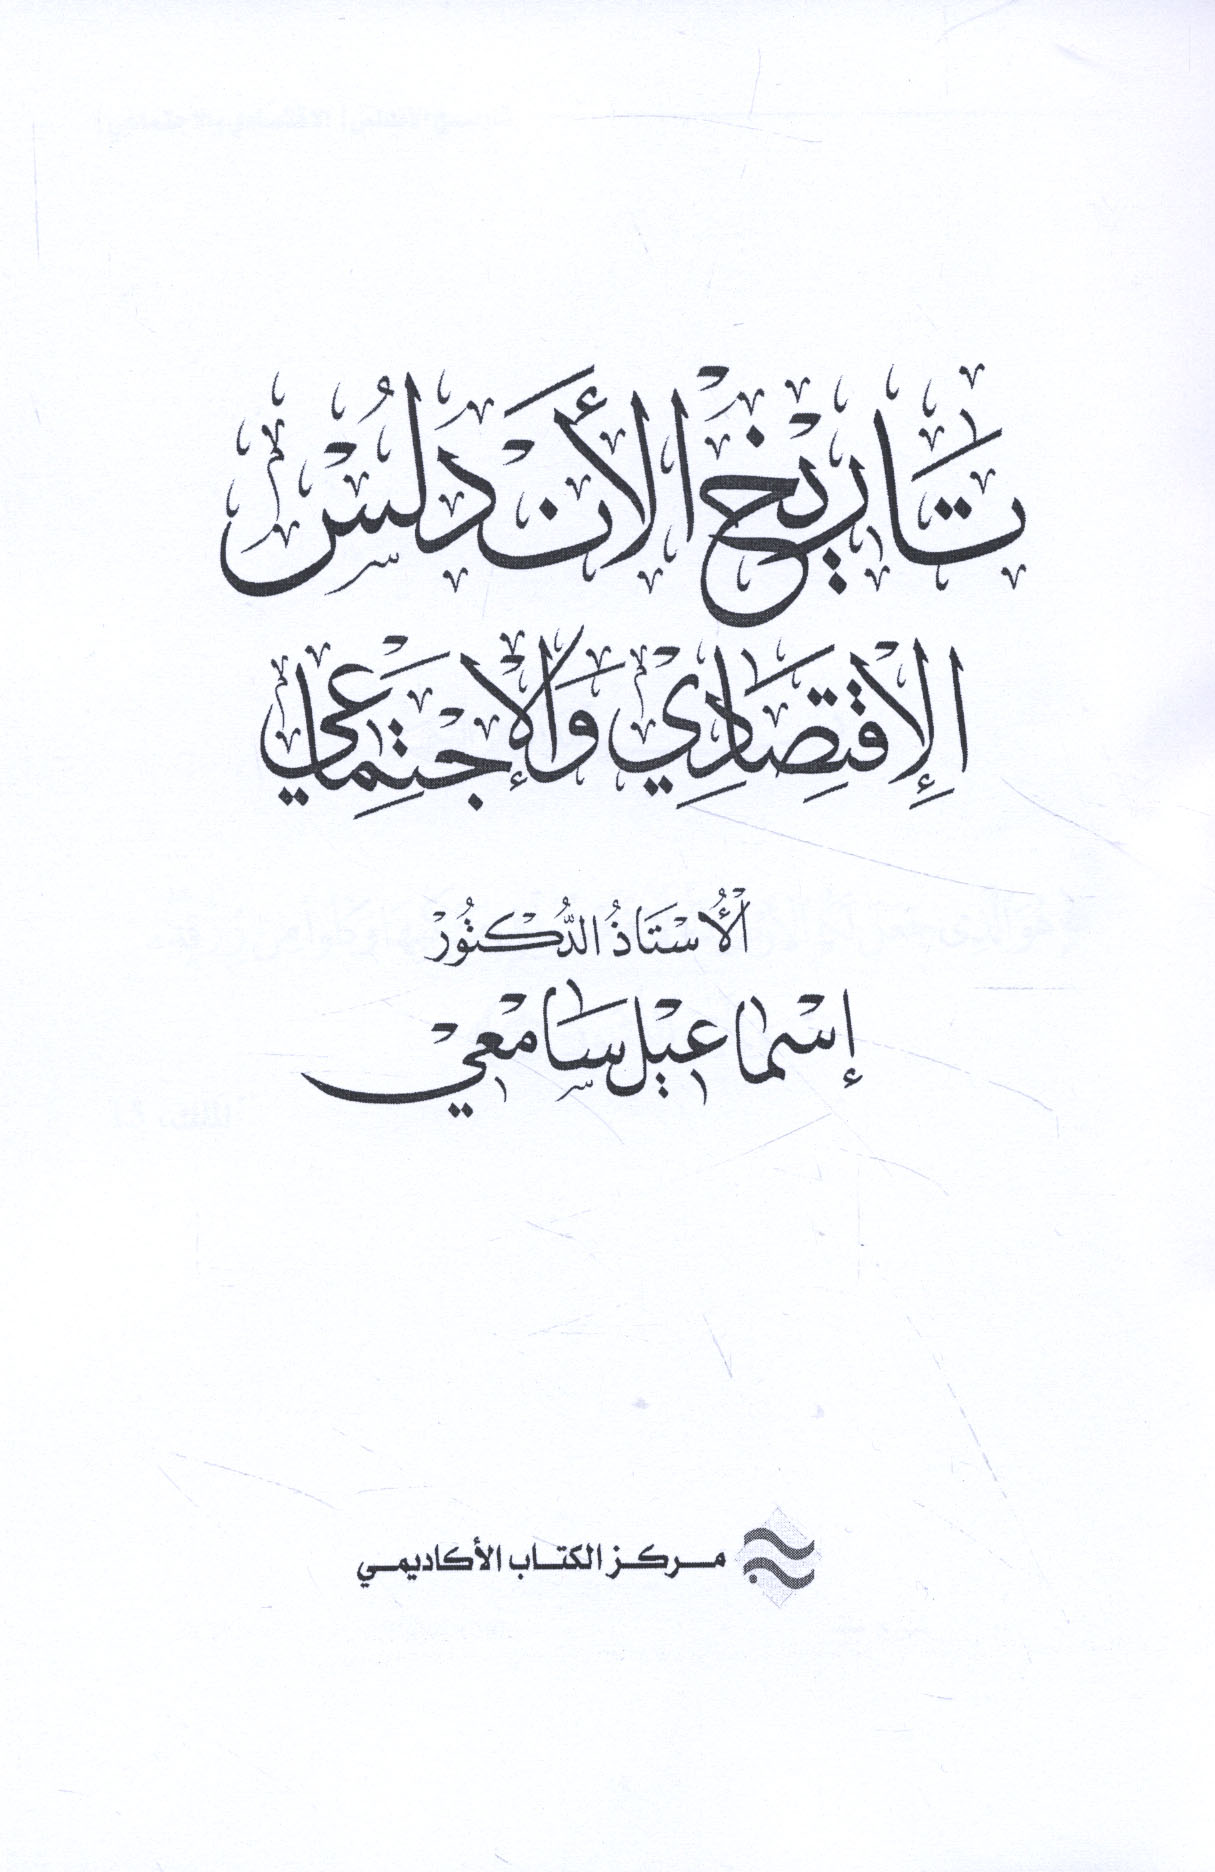 تاريخ الأندلس
الإقتصادي والإجتماعي
الأستاذ الدكتور
إسماعيل سامعي
مركز الكتاب الأكاديمي